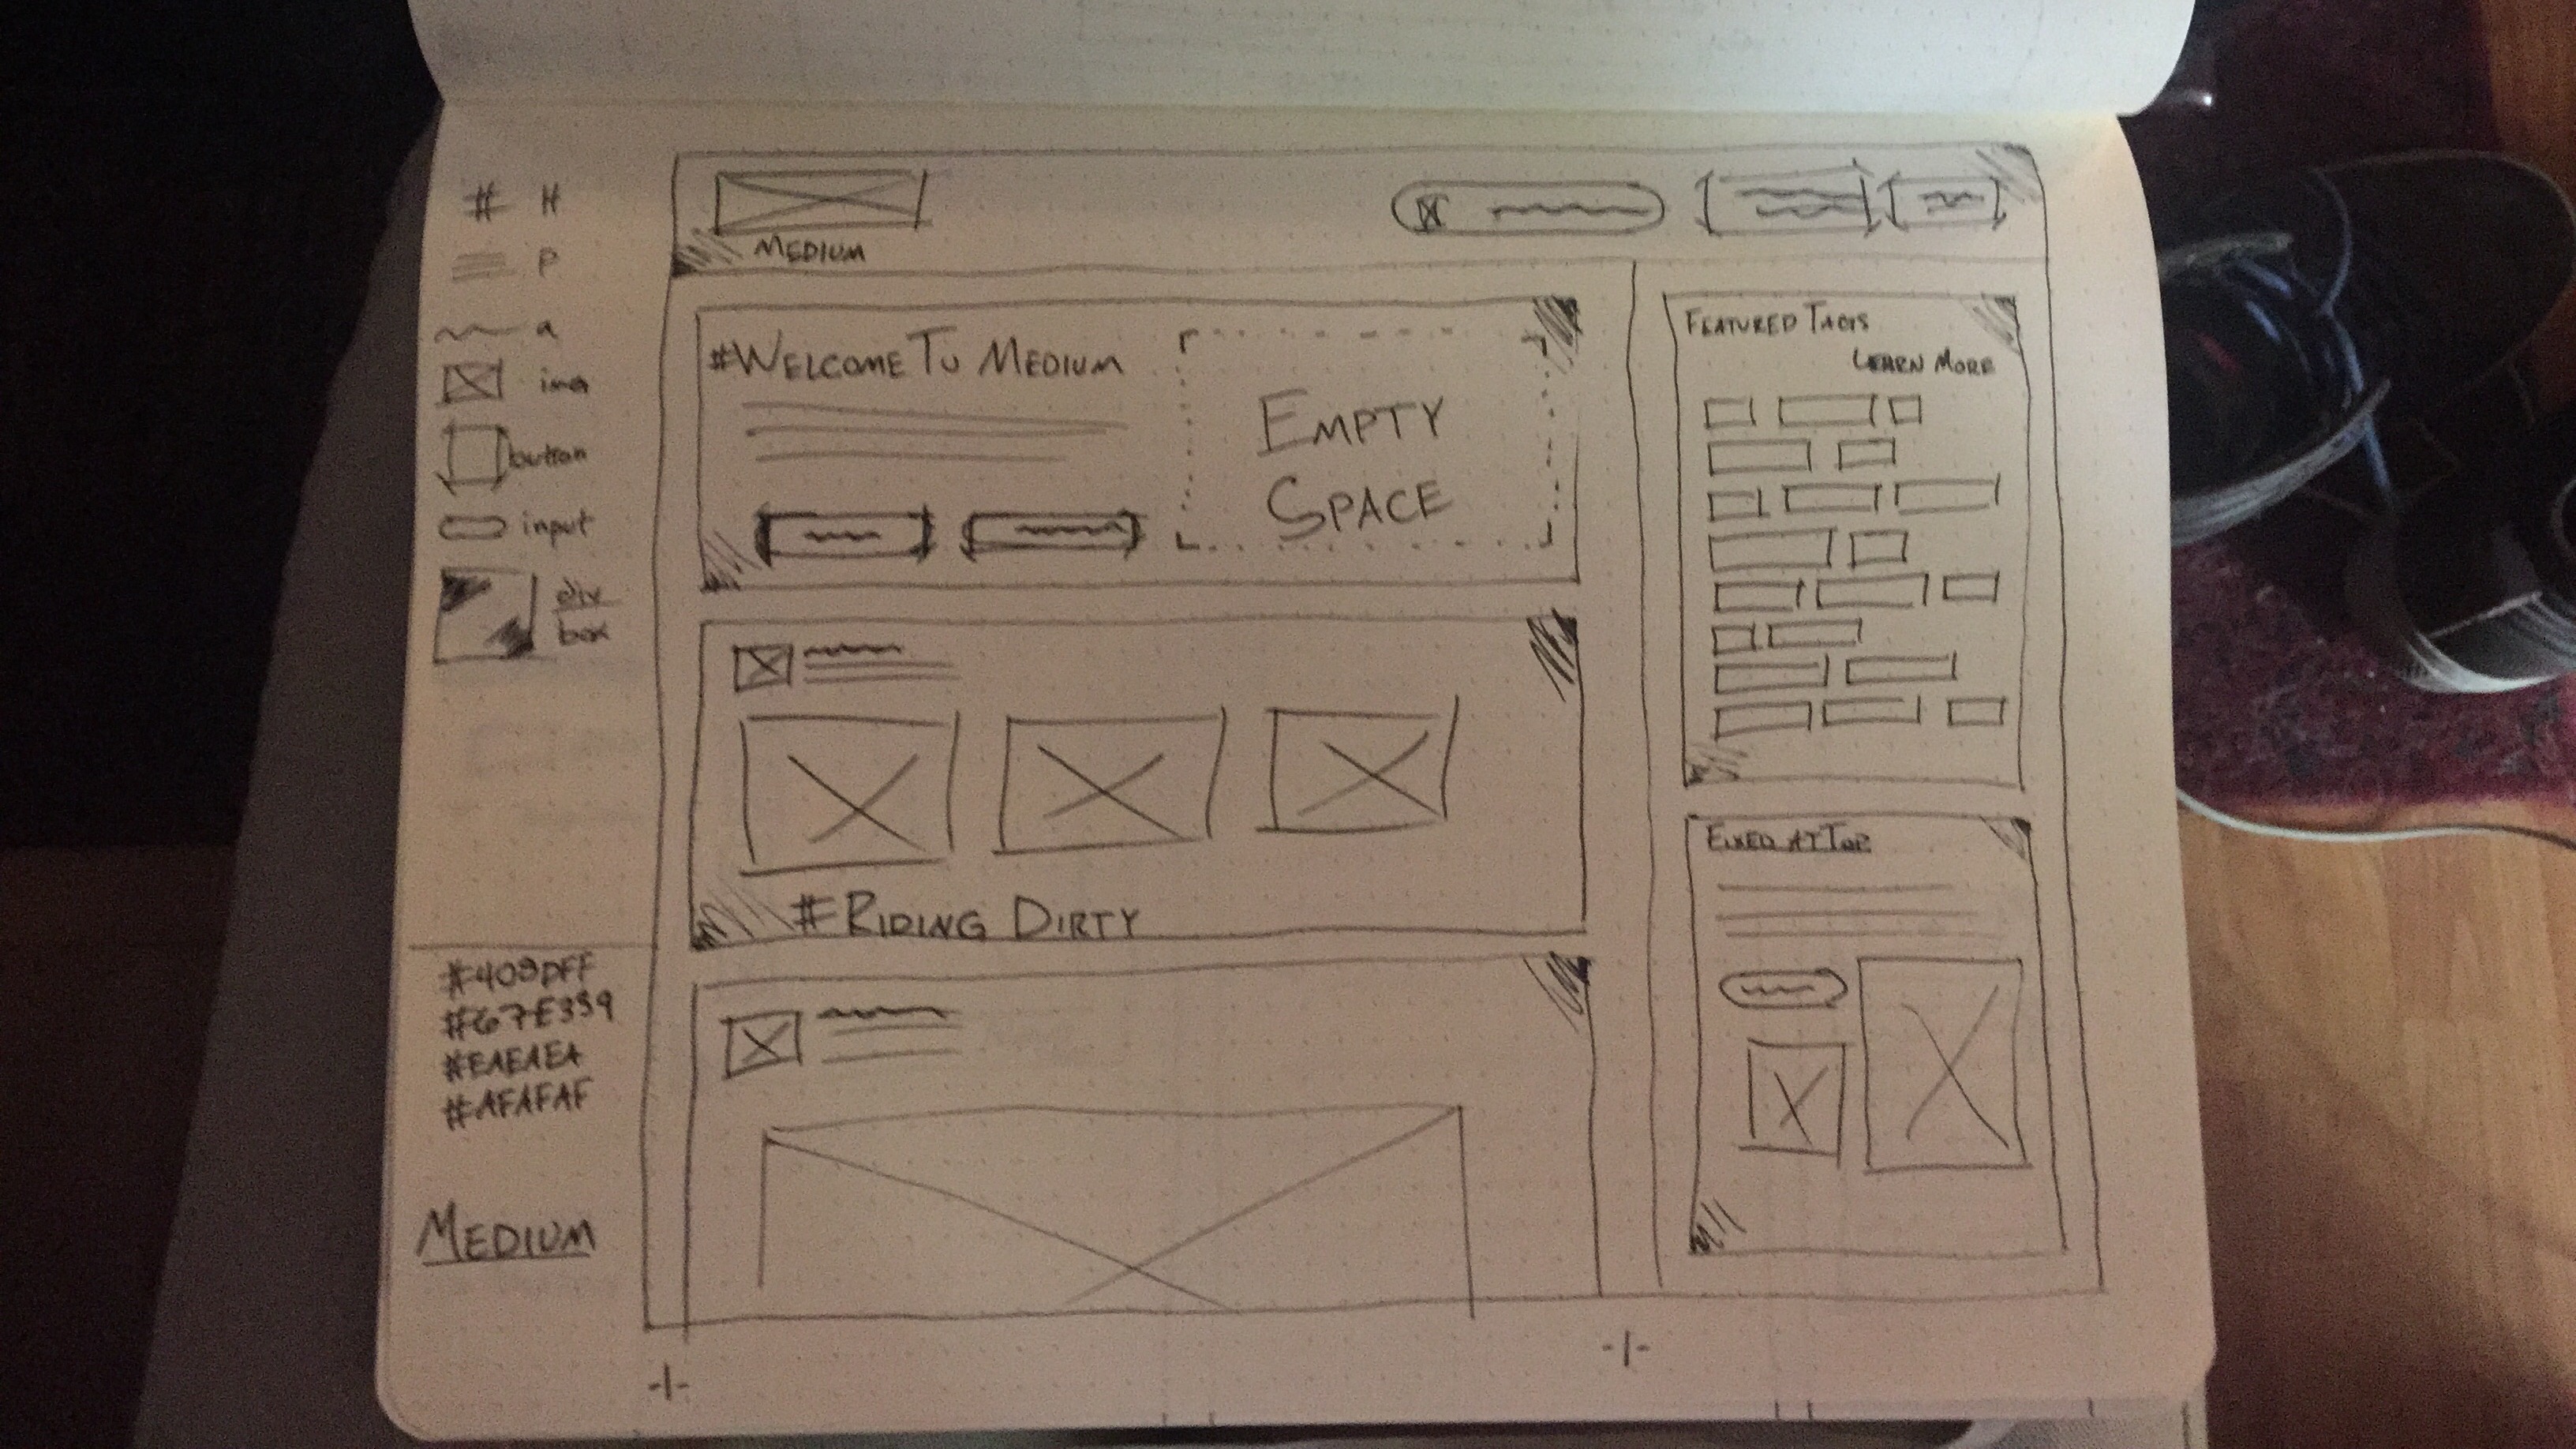 # H
P
a
img
button
input
div
box
#409DFF
#67E339
#EAEAEA
#AFAFAF
MEDIUM
MEDIUM
#WELCOME TO MEDIUM
EMPTY
SPACE
#RIDING DIRTY
FEATURED TAGS
LEARN MORE
FIXED AT TOP
-|-
-|-